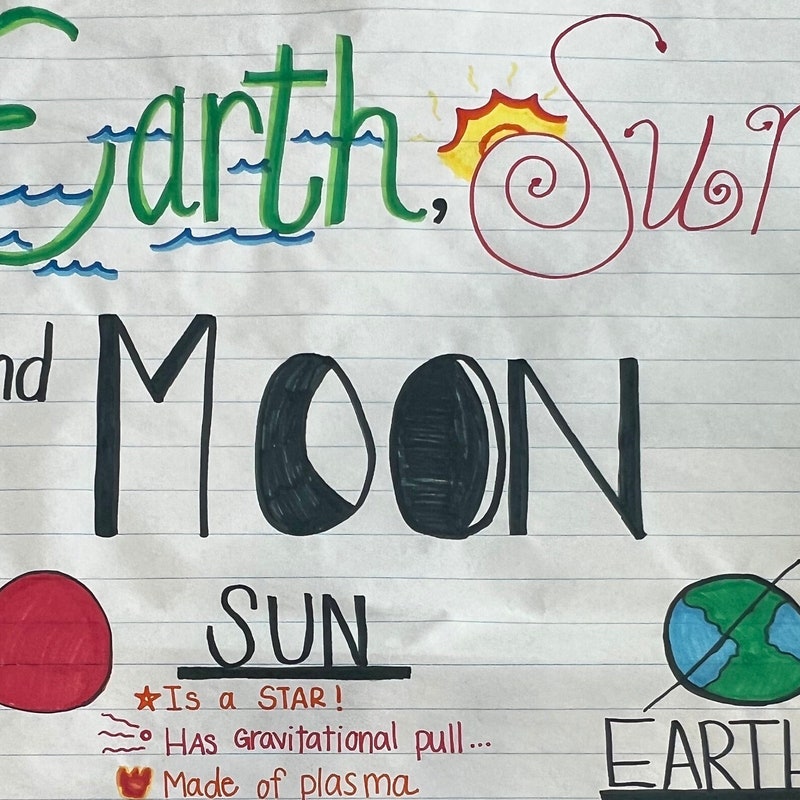 Earth, Sun
nd MOON
SUN
Is a STAR!
HAS Gravitational pull...
Made of plasma
EARTH